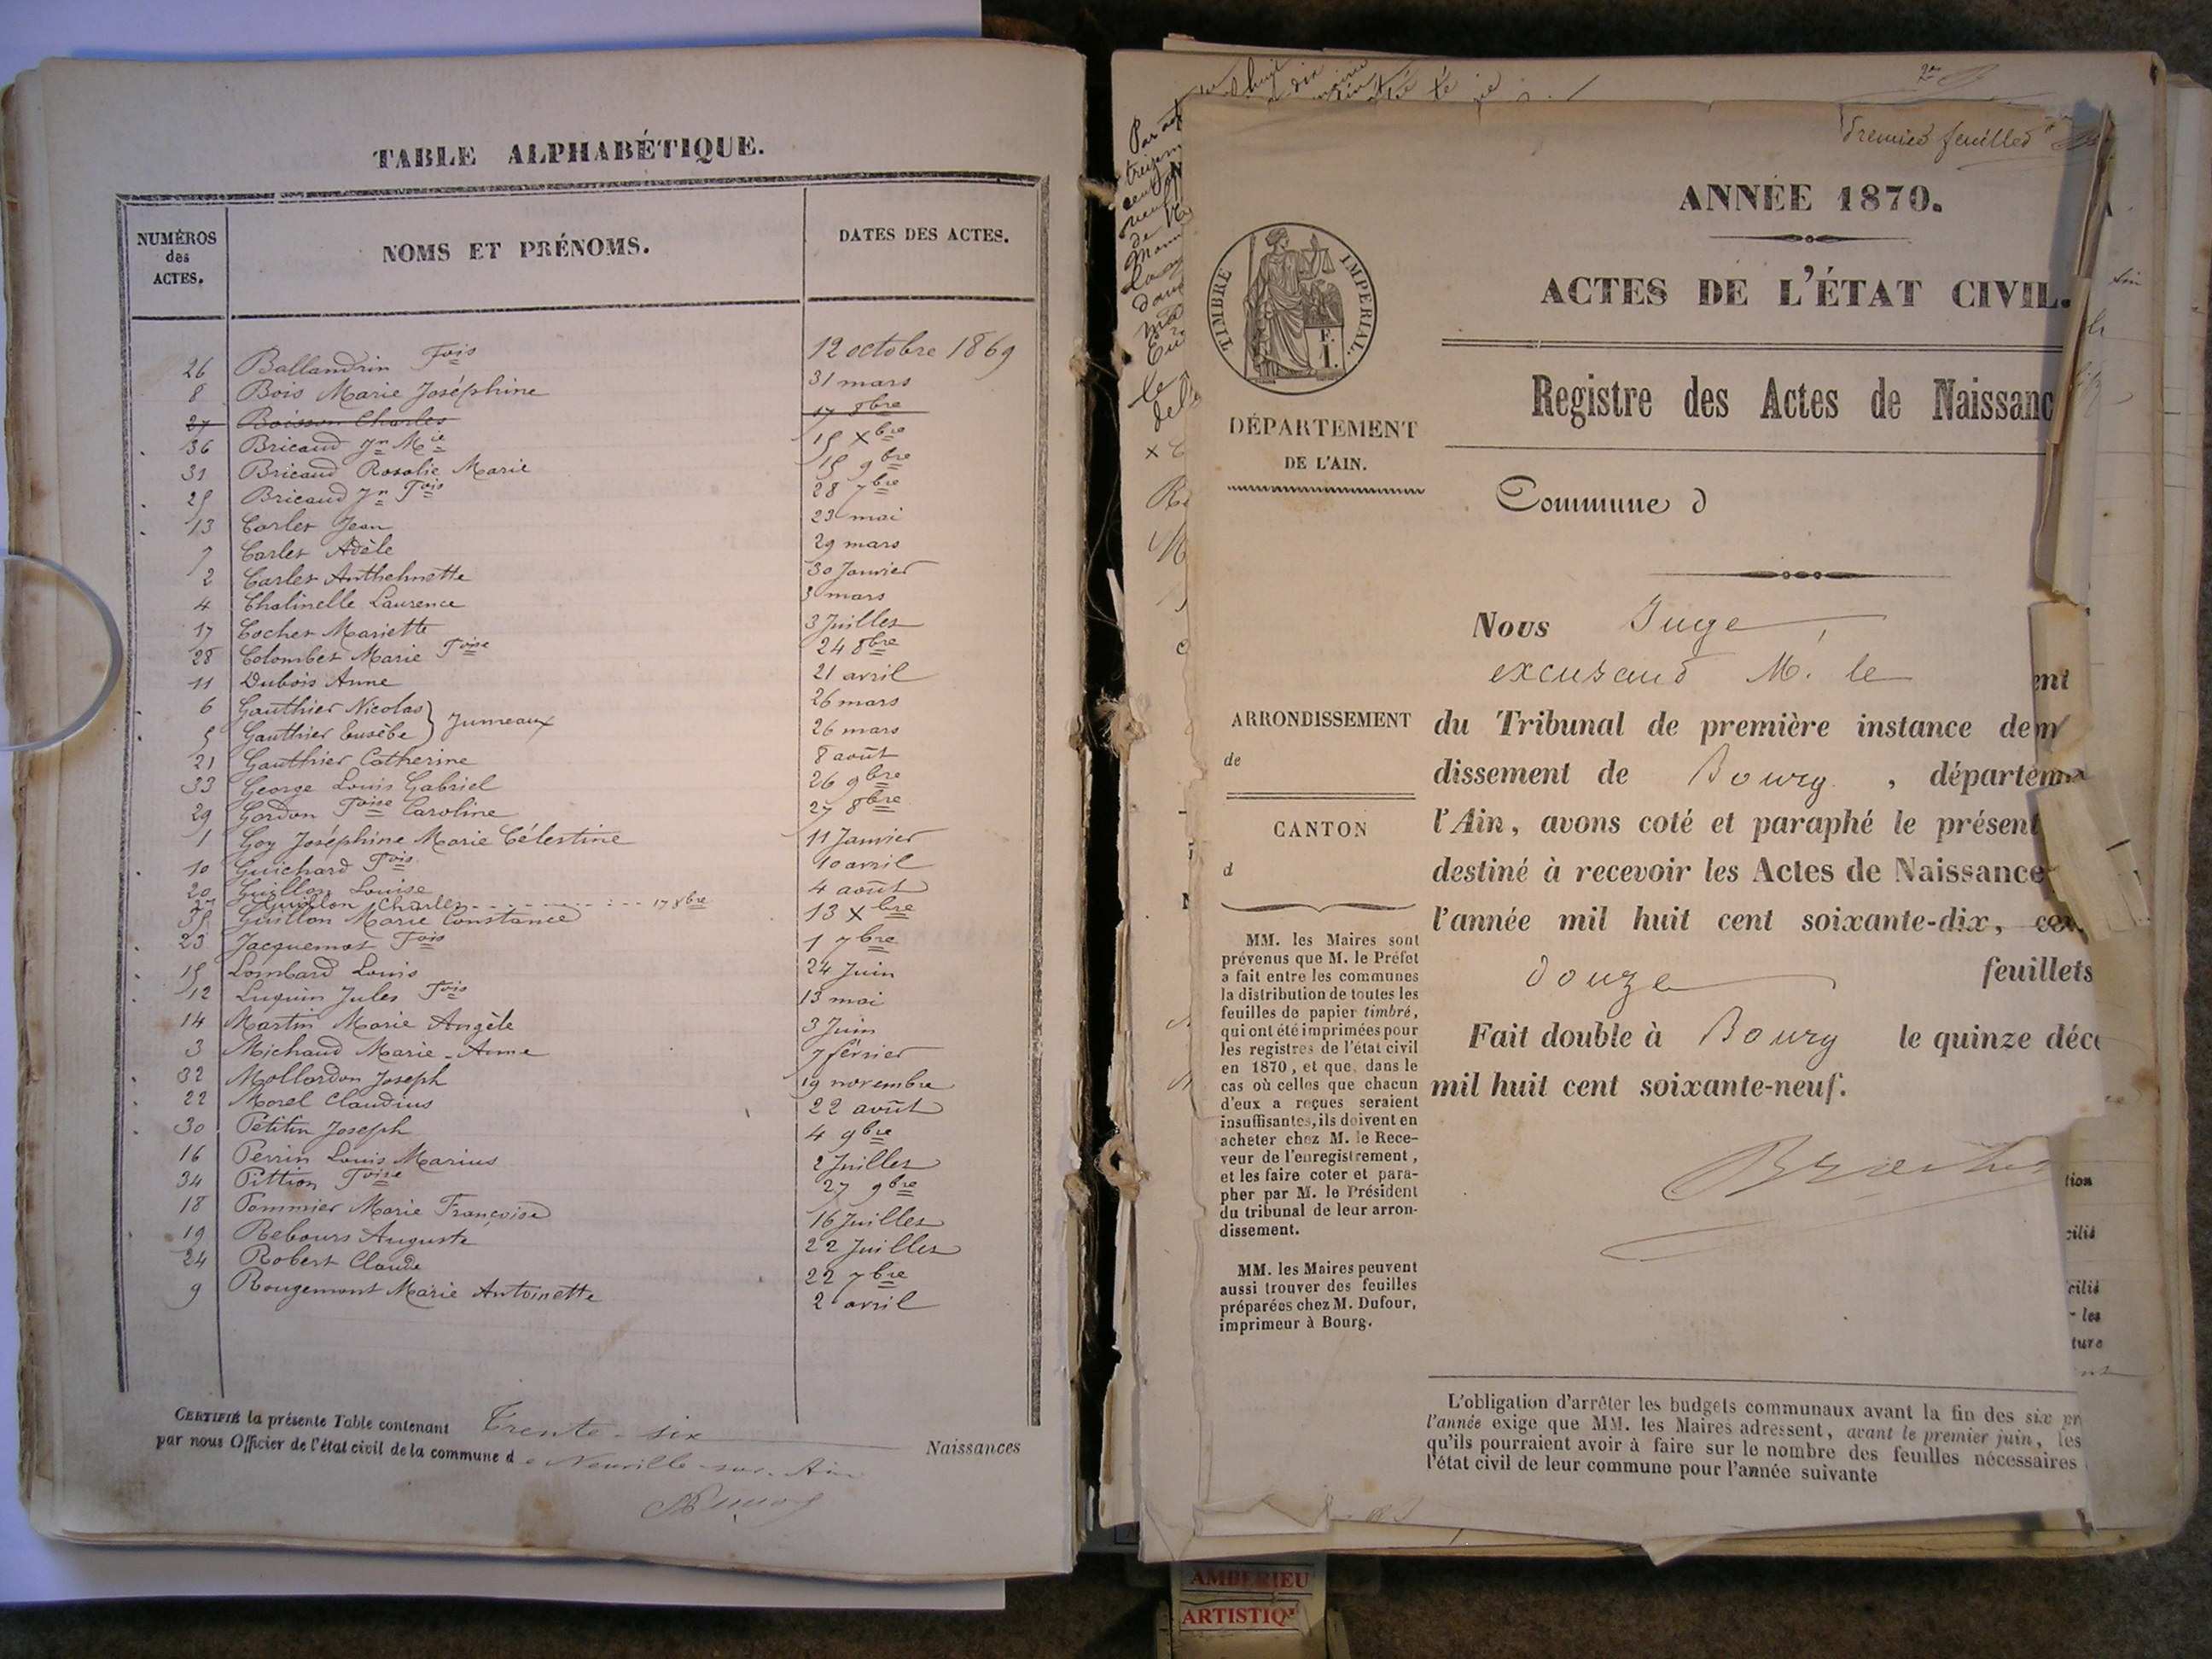 TABLE ALPHABÉTIQUE.
NUMÉROS des ACTES. NOMS ET PRÉNOMS. DATES DES ACTES.
26 Ballandrin Fois 12 octobre 1869
8 Bois Marie Joséphine 31 mars
27 Boisson Charles 17 8bre
36 Bricaud Jn Mie 15 Xbre
31 Bricaud Rosalie Marie 15 9bre
25 Bricaud Jn Fois 28 7bre
13 Carlet Jean 23 mai
7 Carlet Adèle 29 mars
2 Carlet Anthelmette 30 Janvier
4 Chalinelle Laurence 3 mars
17 Cochet Mariette 3 Juillet
28 Colombet Marie Foise 24 8bre
11 Dubois Anne 21 avril
6 Gauthier Nicolas 26 mars
5 Gauthier Eusèbe } Jumeaux 26 mars
21 Gauthier Catherine 8 août
33 George Louis Gabriel 26 9bre
29 Gordon Foise Caroline 27 8bre
1 Goy Joséphine Marie Célestine 11 Janvier
10 Guichard Fois 10 avril
20 Guillon Louise 4 août
27 Guillon Charles 17 8bre
35 Guillon Marie Constance 13 Xbre
23 Jacquemet Fois 1 7bre
15 Lombard Louis 24 Juin
12 Luquin Jules Fois 13 mai
14 Martin Marie Angèle 3 Juin
3 Michaud Marie-Anne 7 février
32 Mollardon Joseph 19 novembre
22 Morel Claudius 22 août
30 Petitin Joseph 4 9bre
16 Perrin Louis Marius 2 Juillet
34 Pittion Foise 27 9bre
18 Pommier Marie Françoise 16 Juillet
19 Rebours Auguste 22 Juillet
24 Robert Claude 22 7bre
9 Rougemont Marie Antoinette 2 avril
CERTIFIÉ la présente Table contenant Trente-six Naissances
par nous Officier de l'état civil de la commune de Neuville-sur-Ain
Premier feuillet
ANNÉE 1870.
ACTES DE L'ÉTAT CIVIL.
TIMBRE IMPÉRIAL.
Registre des Actes de Naissanc
DÉPARTEMENT
DE L'AIN.
Commune d
Nous Juge,
excusant M. le ent
ARRONDISSEMENT
de
du Tribunal de première instance de
dissement de Bourg, départem
CANTON
d
l'Ain, avons coté et paraphé le présent
destiné à recevoir les Actes de Naissance
l'année mil huit cent soixante-dix, con
douze feuillets
Fait double à Bourg le quinze déce
mil huit cent soixante-neuf.
MM. les Maires sont
prévenus que M. le Préfet
a fait entre les communes
la distribution de toutes les
feuilles de papier timbré,
qui ont été imprimées pour
les registres de l'état civil
en 1870, et que, dans le
cas où celles que chacun
d'eux a reçues seraient
insuffisantes, ils doivent en
acheter chez M. le Rece-
veur de l'enregistrement,
et les faire coter et para-
pher par M. le Président
du tribunal de leur arron-
dissement.
MM. les Maires peuvent
aussi trouver des feuilles
préparées chez M. Dufour,
imprimeur à Bourg.
L'obligation d'arrêter les budgets communaux avant la fin des six pr
l'année exige que MM. les Maires adressent, avant le premier juin, les
qu'ils pourraient avoir à faire sur le nombre des feuilles nécessaires
l'état civil de leur commune pour l'année suivante
AMBERIEU
ARTISTIQ